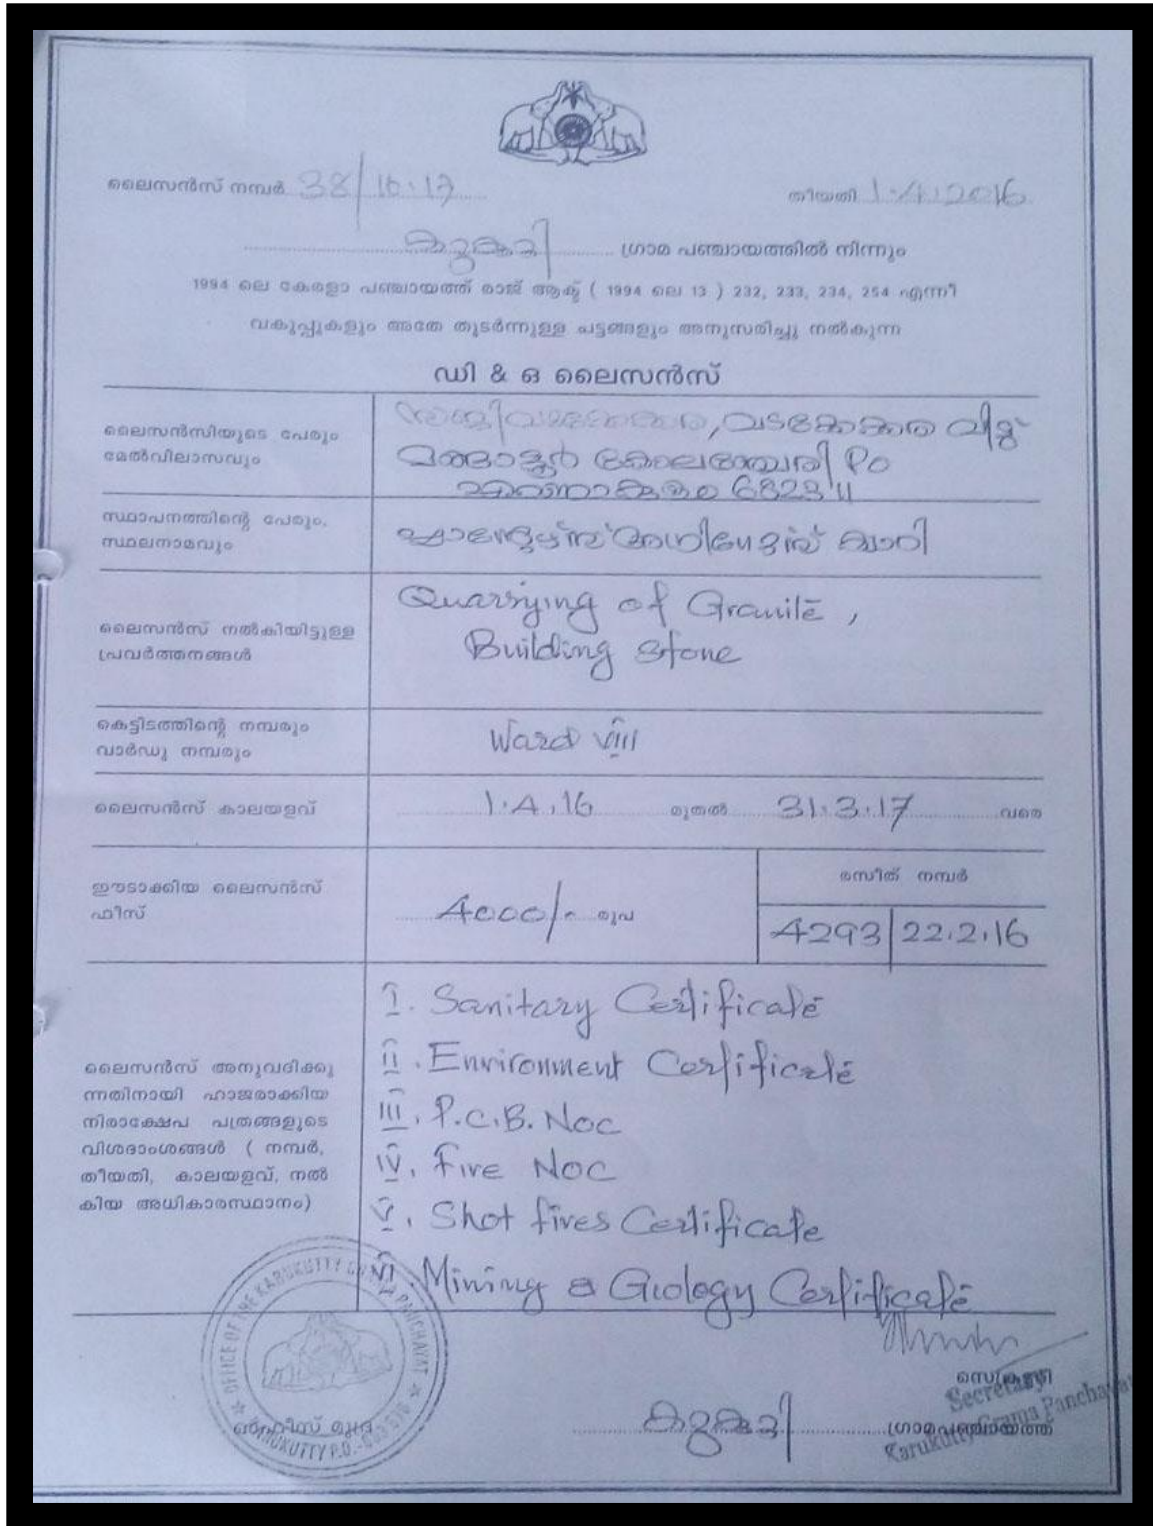 ലൈസൻസ് നമ്പർ 38/16-17
തീയതി 1.4.2016
കറുകുറ്റി ഗ്രാമ പഞ്ചായത്തിൽ നിന്നും
1994 ലെ കേരളാ പഞ്ചായത്ത് രാജ് ആക്ട് ( 1994 ലെ 13 ) 232, 233, 234, 254 എന്നീ
വകുപ്പുകളും അതേ തുടർന്നുള്ള ചട്ടങ്ങളും അനുസരിച്ചു നൽകുന്ന
ഡി & ഒ ലൈസൻസ്
ലൈസൻസിയുടെ പേരും
മേൽവിലാസവും
വടക്കേക്കര വീട്
കോലഞ്ചേരി PO
എറണാകുളം 682311
സ്ഥാപനത്തിന്റെ പേരും,
സ്ഥലനാമവും
ക്വാറി
ലൈസൻസ് നൽകിയിട്ടുള്ള
പ്രവർത്തനങ്ങൾ
Quarrying of Granite,
Building Stone
കെട്ടിടത്തിന്റെ നമ്പരും
വാർഡു നമ്പരും
Ward VIII
ലൈസൻസ് കാലയളവ്
1.4.16 മുതൽ 31.3.17 വരെ
ഈടാക്കിയ ലൈസൻസ്
ഫീസ്
4000/- രൂപ
രസീത് നമ്പർ
4293 22.2.16
ലൈസൻസ് അനുവദിക്കു
ന്നതിനായി ഹാജരാക്കിയ
നിരാക്ഷേപ പത്രങ്ങളുടെ
വിശദാംശങ്ങൾ ( നമ്പർ,
തീയതി, കാലയളവ്, നൽ
കിയ അധികാരസ്ഥാനം)
I. Sanitary Certificate
II. Environment Certificate
III. P.C.B. Noc
IV. Fire Noc
V. Shot fires Certificate
VI. Mining & Giology Certificate
OFFICE OF THE KARUKUTTY GRAMA PANCHAYAT
KARUKUTTY P.O.
ഓഫീസ് മുദ്ര
സെക്രട്ടറി
Secretary
കറുകുറ്റി ഗ്രാമപഞ്ചായത്ത്
Karukutty Grama Panchayat